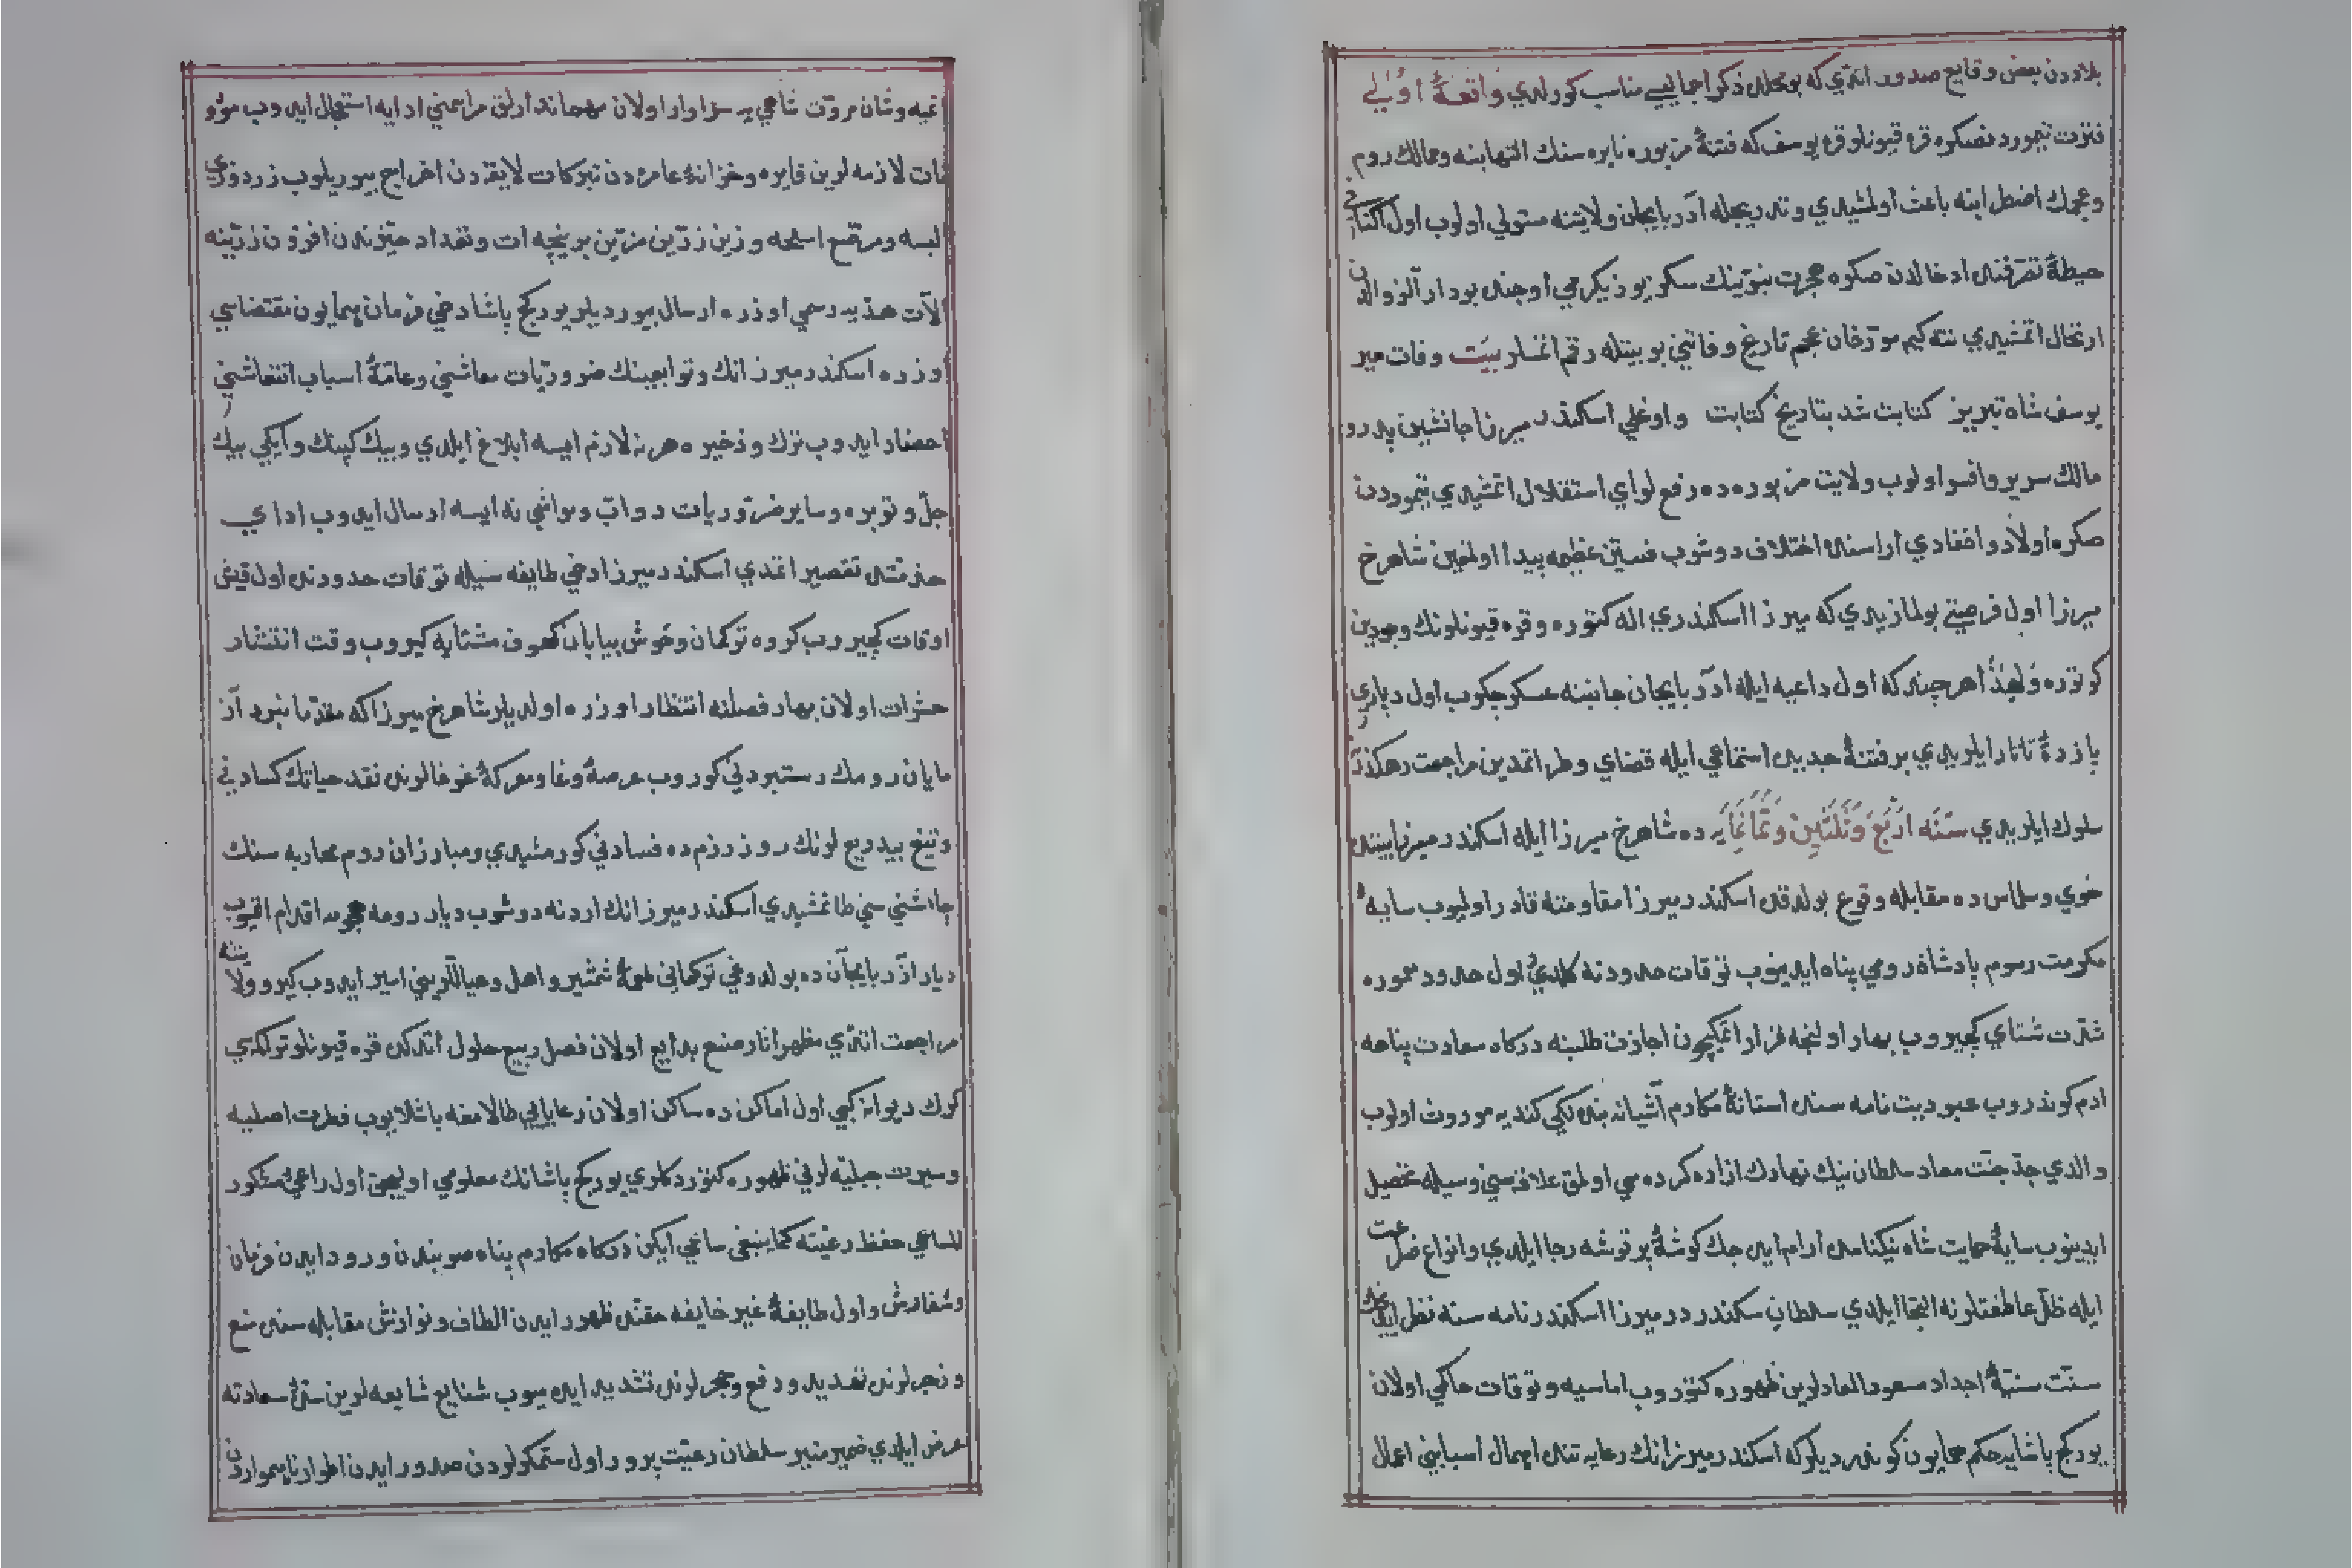 بلاددن بعض وقايع صدور اتدي كه بو محلده ذكر اجماليسي مناسب كورلدي واقعهٔ اولي
فترت تيموردنصكره قره قيونلو قره يوسف كه فتنهٔ مزبوره نايره سنك التهابنه وممالك روم
وعجمك اضطرابنه باعث اولمشيدي وتدريجله آذربايجان ولايتنه مستولي اولوب اول اكنافي
حيطهٔ تصرفنه ادخالدن صكره هجرت نبوتينك سكز يوز يكرمي اوچنده بو دار آلزوالدن
ارتحال اتمشيدي نته كيم مورخان عجم تاريخ وفاتني بو بيتله رقم اتمشلر بيت وفات مير
يوسف شاه تبريز كتابت شد بتاريخ كتابت واوغلي اسكندر ميرزا جانشين پدر و
مالك سرير وافسر اولوب ولايت مزبوره ده رفع لواي استقلال اتمشيدي تيموردن
صكره اولاد واحفادي اراسنده اختلاف دوشوب فتن عظيمه پيدا اولمغين شاهرخ
ميرزا اول فرصتي بولمازيدي كه ميرزا اسكندري اله كتوره وقره قيونلونك وجودين
كوتوره ولهذا هر چند كه اول داعيه ايله اذربايجان جانبنه عسكر چكوب اول دياري
پازدهٔ تاتار ايلريدي بر فتنهٔ حديده استماعي ايله قضاي وطر اتمدين مراجعت رهكذرنه
سلوك ايلريدي سنه اربع وثلثين وثمانمايه ده شاهرخ ميرزا ايله اسكندر ميرزا بيننده
خوي وسلماس ده مقابله وقوع بولدقده اسكندر ميرزا مقاومته قادر اوليوب سايهٔ
مكرمت رسوم پادشاه رومي پناه ايدينوب توقات حدودنه كلدي اول حدود معموره
شدت شتاي كچيروب بهار اولنجه قرار اتمكيچون اجازت طلبنه دركاه سعادت پناهه
ادم كوندروب عبوديت نامه سنده استانهٔ مكارم آشيانه بنده لكي كنديه موروث اولوب
والدي جد جنت معاد سلطان نيك نهادك ازاده كرده سي اولمق علاقه سني وسيله تحصيل
ايدينوب سايهٔ حمايت شاه نيكنامده ارام ايده جك كوشهٔ پر توشه رجا ايلدي وانواع ضراعت
ايله ظل عاطفتلرنه التجا ايلدي سلطان سكندر در ميرزا اسكندر نامه سنه نظر ايدجك
سنت سنيهٔ اجداد مسعود المعادلرين ظهوره كتوروب اماسيه وتوقات حاكمي اولان
يوركج پاشايه حكم همايون كوندرديلر كه اسكندر ميرزانك رعايه تنده اهمال اسبابني اعمال
اتميه وشان مروت شاهي يه سزاوار اولان مهمانداراق مراسمني ادايه استعجال ايدوب مؤو
نات لازمه لرين قايره وخزانهٔ عامره دن تبركات لايقه دن اخراج بيوريلوب زردوزي
البسه ومرصع اسلحه وزين زرين مزين بر نيچه ات ونقداد حيزندن افزون زرينه
آلات هديه رسمي اوزره ارسال بيورديلر يوركج پاشا دخي فرمان همايون مقتضاسي
اوزره اسكندر ميرزانك وتوابعينك ضروريات معاشني وعامهٔ اسباب انتعاشني
احضار ايدوب نزل وذخيره هر نه لازم ايسه ابلاغ ايلدي وبيك كپنك وايكي بيك
جل وتوبره وساير ضروريات دواب ومواشي نه ايسه ارسال ايدوب اداي
خدمتده تقصير اتمدي اسكندر ميرزا دخي طايفه سيله توقات حدودنده اول قيش
اوقات كچيروب كروه تركمان وحوش بيابان كهوف مشتايه كيروب وقت انتشار
حشرات اولان بهار فصلنه انتظار اوزره اولديلر شاهرخ ميرزا كه مقدما نبرد آز
مايان رومك دستبردني كوروب عرصهٔ وغا ومعركهٔ غوغالرنده نقد حياتك كسادني
وتيغ بيدريغ لرنك روز رزمده فسادني كورمشيدي ومبارزان روم محاربه سنك
چاشنيسني طاتمشيدي اسكندر ميرزانك اردنه دوشوب ديار رومه هجومه اقدام اتميوب
ديار آذربايجان ده بولدوغي تركماني طعمهٔ شمشير واهل وعياللريني اسير ايدوب كيرو ولايتنه
مراجعت اتدي مظهر اثار صنع بدايع اولان فصل ربيع حلول اتدكده قره قيونلو تولكدي
كرك ديوانه كبي اول اماكن ده ساكن اولان رعايايي طالامغه باشلايوب فطرت اصليه
وسيرت جبليه لرني ظهوره كتوردكلري يوركج پاشانك معلومي اوليجق اول راعي مشكور
المساعي حفظ رعيته كما ينبغي ساعي ايكن دركاه مكارم پناه صوبندن ورود ايدن فرمان
وسفارش واول طايفهٔ غير خايفه حقنده ظهور ايدن الطاف ونوازش مقابله سنده منع
وزجرلرنده تهديد ودفع وحجرلرنده تشديد ايده ميوب شنايع شايعه لرين سدهٔ سعادته
عرض ايلدي ضمير منير سلطان رعيت پرور اول ستمكرلردن صدور ايدن اطوار ناهمواردن